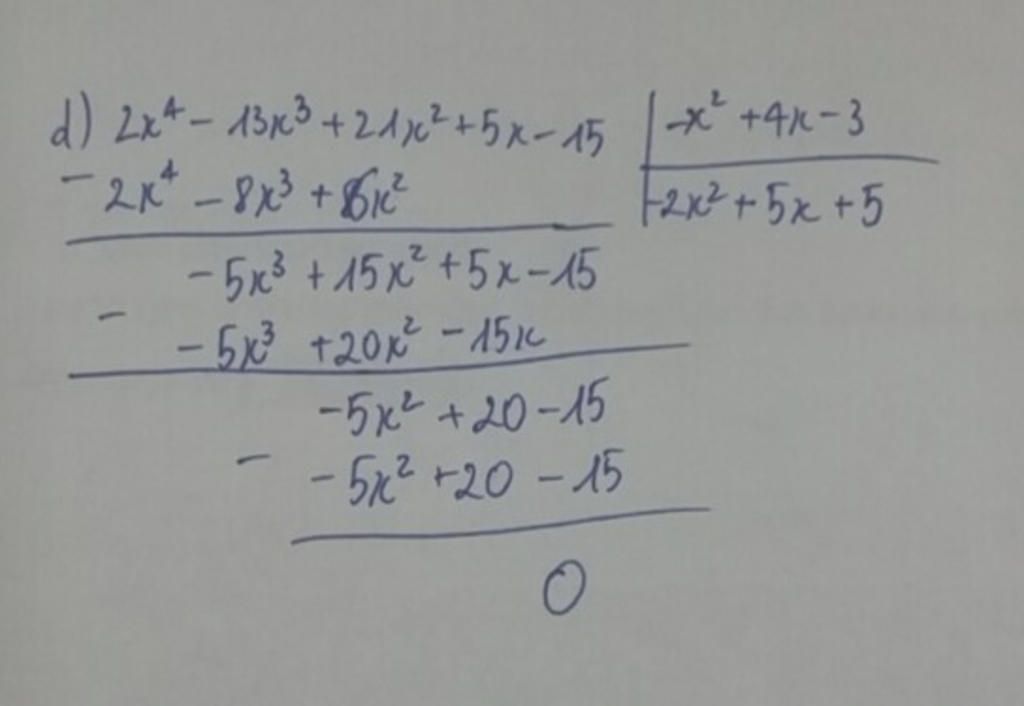 d) 2x⁴ - 13x³ + 21x² + 5x - 15 | -x² + 4x - 3
- 2x⁴ - 8x³ + 6x² | -2x² + 5x + 5
- 5x³ + 15x² + 5x - 15
- - 5x³ + 20x² - 15x
-5x² + 20 - 15
- - 5x² + 20 - 15
0